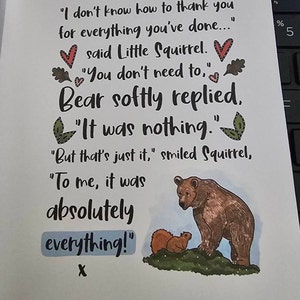 "I don't know how to thank you
for everything you've done..."
said Little Squirrel.
"You don't need to,"
Bear softly replied,
"It was nothing."
"But that's just it," smiled Squirrel,
"To me, it was
absolutely
everything!"
x
5